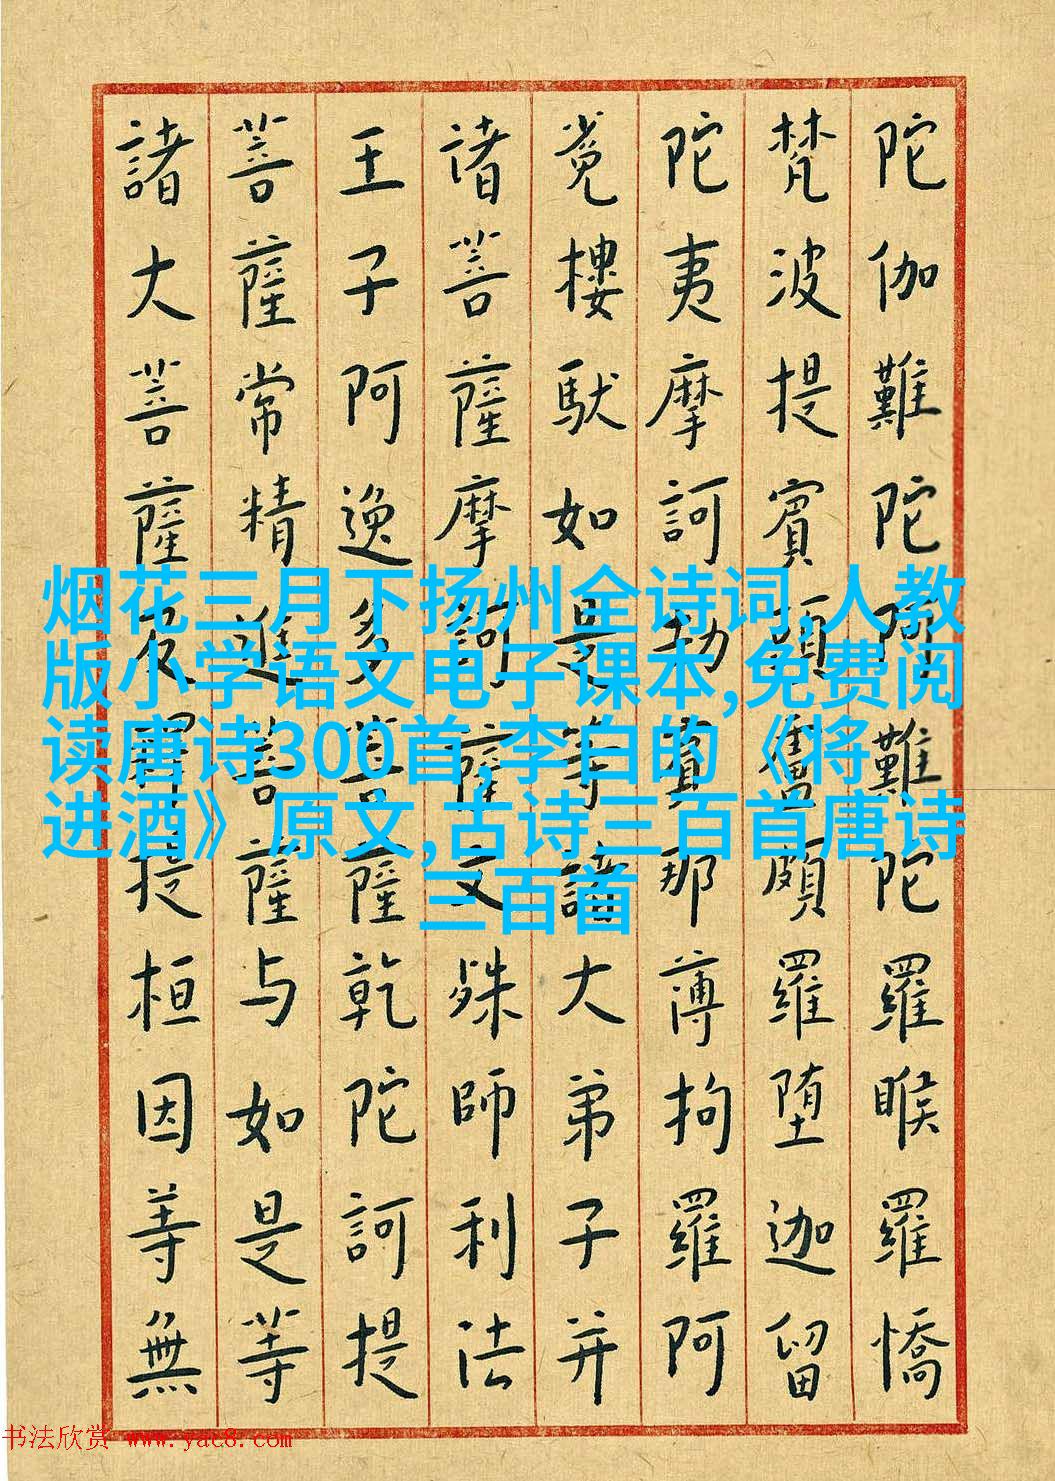 陀伽難陀阿難陀羅睺羅憍
梵波提賓頭盧頗羅堕迦留
陀夷摩訶劫賓那薄拘羅阿
㝹樓馱如是等諸大弟子并
诸菩薩摩訶薩文殊師利法
王子阿逸多菩薩乾陀訶提
菩薩常精進菩薩与如是等
諸大菩薩及釋提桓因等無
烟花三月下扬州全诗词,人教
版小学语文电子课本,免费阅
读唐诗300首,李白的《将
进酒》原文,古诗三百首唐诗
三百首
书法欣赏 www.yac8.com